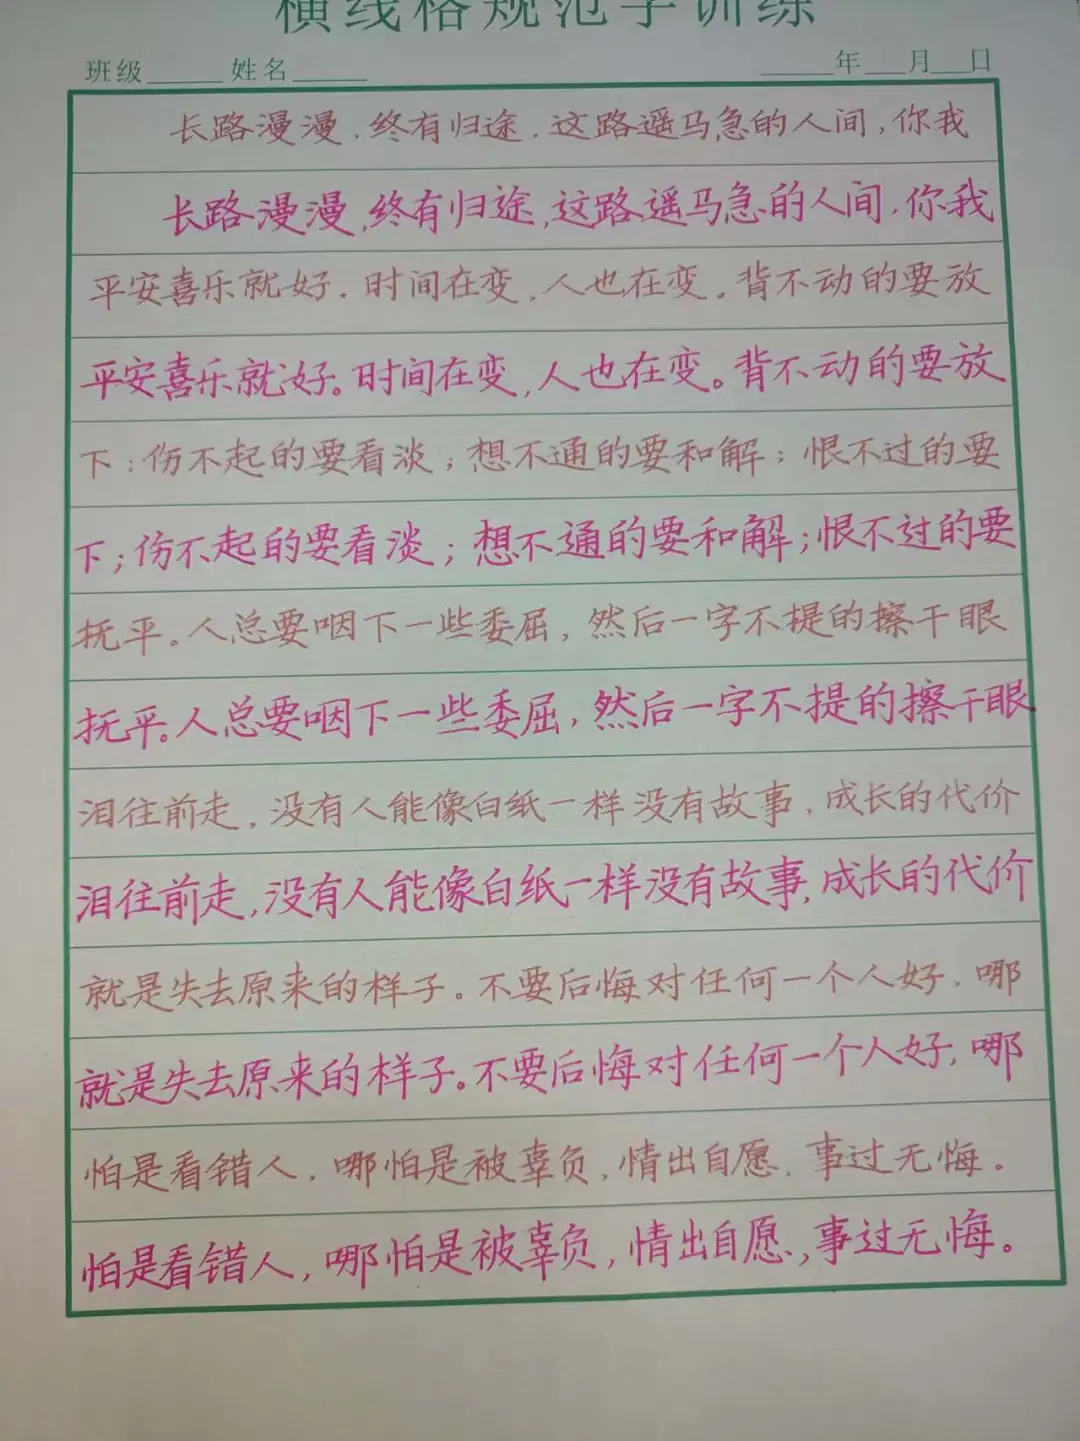 横线格规范字训练
班级 姓名 年 月 日
长路漫漫，终有归途，这路遥马急的人间，你我
长路漫漫，终有归途，这路遥马急的人间，你我
平安喜乐就好。时间在变，人也在变。背不动的要放
平安喜乐就好。时间在变，人也在变。背不动的要放
下；伤不起的要看淡；想不通的要和解；恨不过的要
下；伤不起的要看淡；想不通的要和解；恨不过的要
抚平。人总要咽下一些委屈，然后一字不提的擦干眼
抚平。人总要咽下一些委屈，然后一字不提的擦干眼
泪往前走，没有人能像白纸一样没有故事，成长的代价
泪往前走，没有人能像白纸一样没有故事，成长的代价
就是失去原来的样子。不要后悔对任何一个人好，哪
就是失去原来的样子。不要后悔对任何一个人好，哪
怕是看错人，哪怕是被辜负，情出自愿，事过无悔。
怕是看错人，哪怕是被辜负，情出自愿，事过无悔。